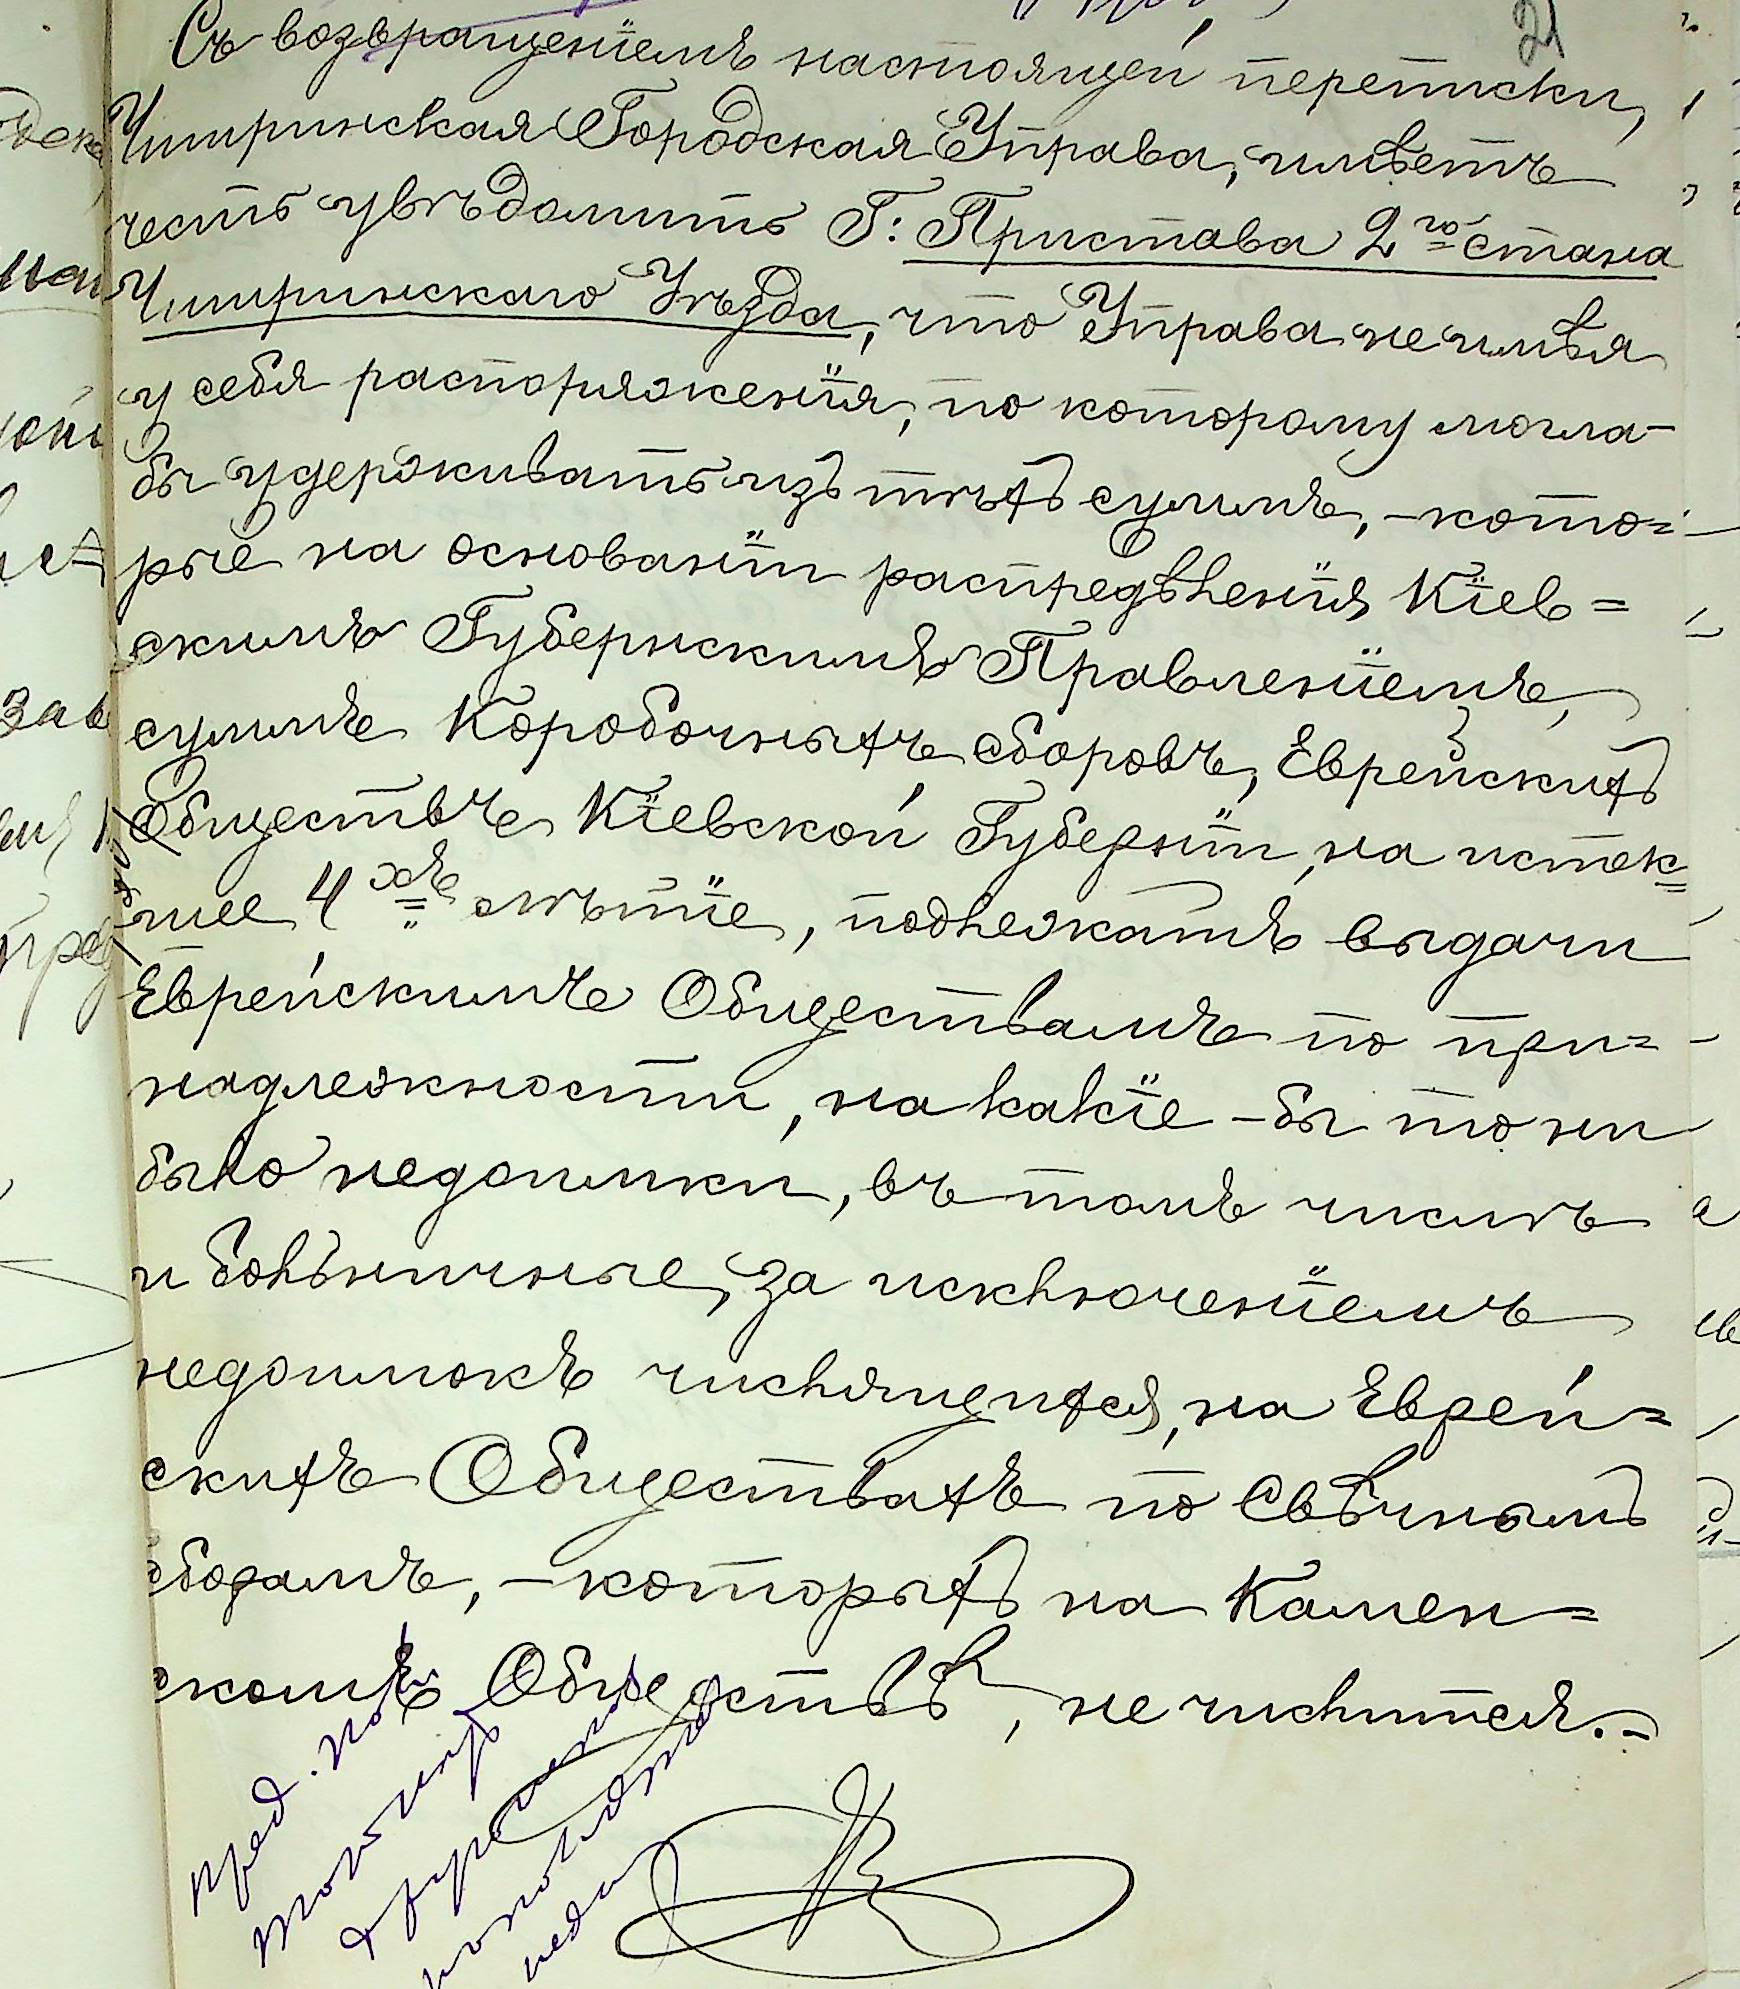 21
Съ возвращеніемъ настоящей переписки,
Чигиринская Городская Управа, имѣетъ
честь увѣдомить Г: Пристава 2го стана
Чигиринскаго Уѣзда, что Управа не имѣя
у себя распоряженія, по которому могла-
бы удерживать изъ тѣхъ суммъ, - кото=
рые на основаніи распредѣленія Кіев=
скимъ Губернскимъ Правленіемъ,
суммъ Коробочныхъ сборовъ, Еврейскихъ
Обществъ Кіевской Губерніи, на истек=
шее 4хъ лѣтіе, подлежатъ выдачи
Еврейскимъ Обществамъ по при=
надлежности, на какіе - бы то ни
было недоимки, въ томъ числѣ
и больничные, за исключеніемъ
недоимокъ числящихся, на Еврей=
скихъ Обществахъ по Свѣчнымъ
сборамъ, - которыхъ на Камен=
скомъ Обществѣ, не числится. -
пред.